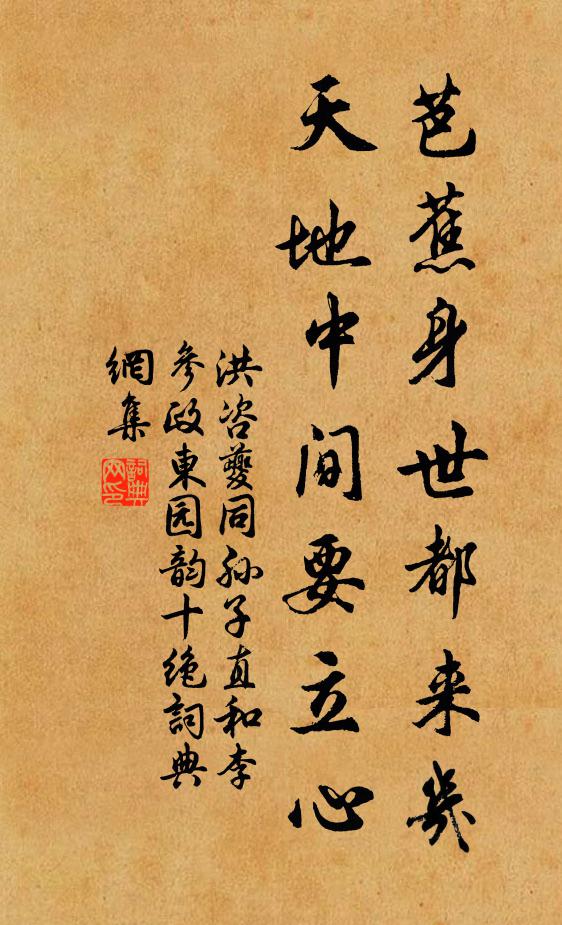 芭蕉身世都来幾
天地中间要立心
洪咨夔同孙子直和李
参政東园韵十绝詞典
網集
詞典網印